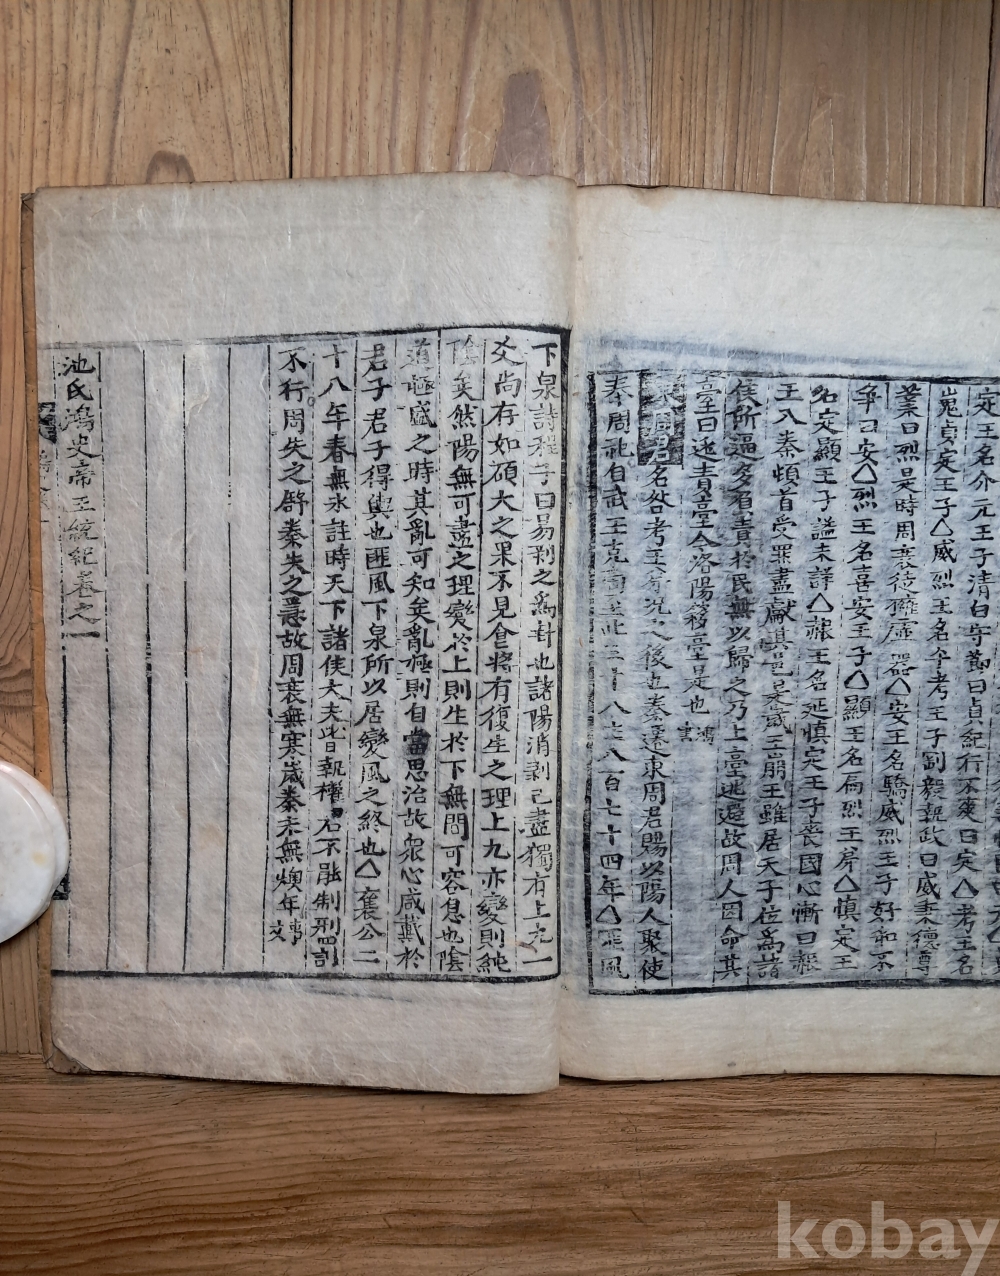 定王名介元王子清白守節曰貞紀行不爽曰定△考王名
嵬貞定王子△威烈王名午考王子剛毅執政曰威秉德尊
業曰烈是時周衰徒擁虛器△安王名驕威烈王子好和不
爭曰安△烈王名喜安王子△顯王名扁烈王弟△慎定王
名定顯王子謚未詳△赧王名延慎定王子喪國心慚曰赧
王入秦頓首受罪盡獻其邑是歲王崩王雖居天子位爲諸
侯所逼多負責於民無以歸之乃上臺逃避故周人因命其
臺曰逃責臺今洛陽簃臺是也 鴻書
東周君名咎考王 後也秦遷東周君賜以陽人聚使
奉周祀自武王克商至此三十八世八百七十四年△匪風
下泉詩程子曰易剥之爲卦也諸陽消剥已盡獨有上九一
爻尚存如碩大之果不見食將有復生之理上九亦變則純
陰矣然陽無可盡之理變於上則生於下無間可容息也陰
道極盛之時其亂可知矣亂極則自當思治故衆心咸戴於
君子君子得輿也匪風下泉所以居變風之終也△襄公二
十八年春無氷註時天下諸侯大夫皆執權君不能制刑罰
不行周失之舒秦失之急故周衰無寒歲秦末無燠年 事文
池氏鴻史帝王統紀卷之一
kobay